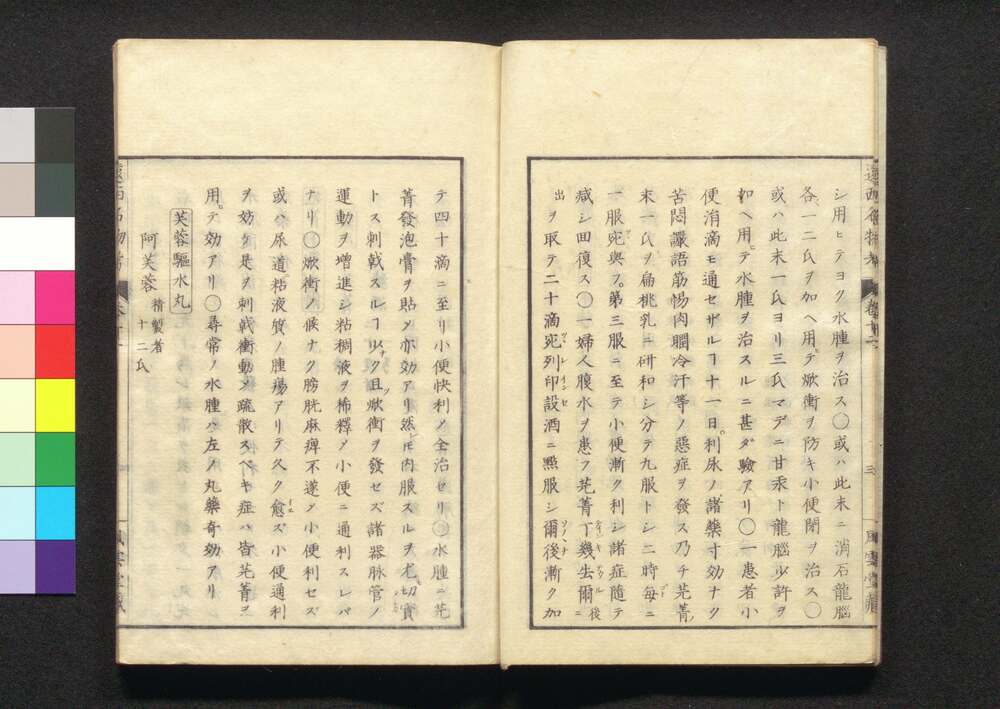 遠西名物考
巻十二
三
風雲堂蔵
シ用ヒテヨク水腫ヲ治ス〇或ハ此末ニ消石龍腦
各一二氏ヲ加ヘ用テ焮衝ヲ防キ小便閉ヲ治ス〇
或ハ此末一氏ヨリ三氏マデニ甘汞ト龍腦少許ヲ
和ヘ用テ水腫ヲ治スルニ甚ダ驗アリ〇一患者小
便涓滴モ通セザルヿ十一日利尿ノ諸藥寸効ナク
苦悶讝語筋惕肉瞤冷汗等ノ惡症ヲ發ス乃チ芫菁
末一氏ヲ扁桃乳ニ研和シ分テ九服トシ二時毎ニ
一服宛與フ第三服ニ至テ小便漸ク利シ諸症隨テ
減シ回復ス〇一婦人腹水ヲ患フ芫菁丁幾去爾後ニ
出ヲ取テ二十滴宛列印設酒ニ點服シ爾後漸ク加
テ四十滴ニ至リ小便快利ノ全治セリ〇水腫ニ芫
菁發泡膏ヲ貼メ亦効アリ然𪜈肉服スルヲ尤切實
トス刺戟スルヿ少ク且焮衝ヲ發セズ諸器脉管ノ
運動ヲ増進シ粘稠液ヲ稀釋メ小便ニ通利スレバ
ナリ〇焮衝ノ候ナク膀胱麻痺不遂メ小便利セズ
或ハ尿道粘液質ノ腫瘍アリテ久ク愈ズ小便通利
ヲ妨ケ是ヲ刺戟衝動メ疏散スベキ症ハ皆芫菁ヲ
用テ効アリ〇尋常ノ水腫ハ左ノ丸藥奇効アリ
芙蓉驅水丸
阿芙蓉 精製者 十二氏